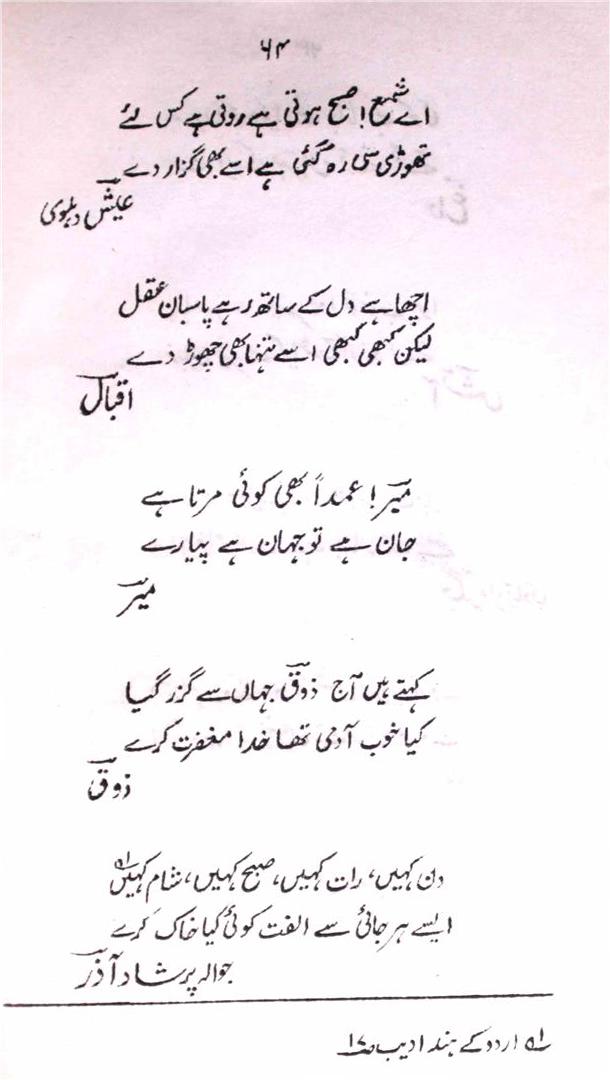 ۶۴
اے شمع! صبح ہوتی ہے روتی ہے کس لئے
تھوڑی سی رہ گئی ہے اسے بھی گزار دے
عیشؔ دہلوی
اچھا ہے دل کے ساتھ رہے پاسبان عقل
لیکن کبھی کبھی اسے تنہا بھی چھوڑ دے
اقبالؔ
میرؔ! عمداً بھی کوئی مرتا ہے
جان ہے تو جہان ہے پیارے
میرؔ
کہتے ہیں آج ذوقؔ جہاں سے گزر گیا
کیا خوب آدمی تھا خدا مغفرت کرے
ذوقؔ
دن کہیں، رات کہیں، صبح کہیں، شام کہیں ۱ھ
ایسے ہر جائی سے الفت کوئی کیا خاک کرے
جوالہ پرشاد آذرؔ
۱ھ اردو کے ہند ادیب ص۱۷